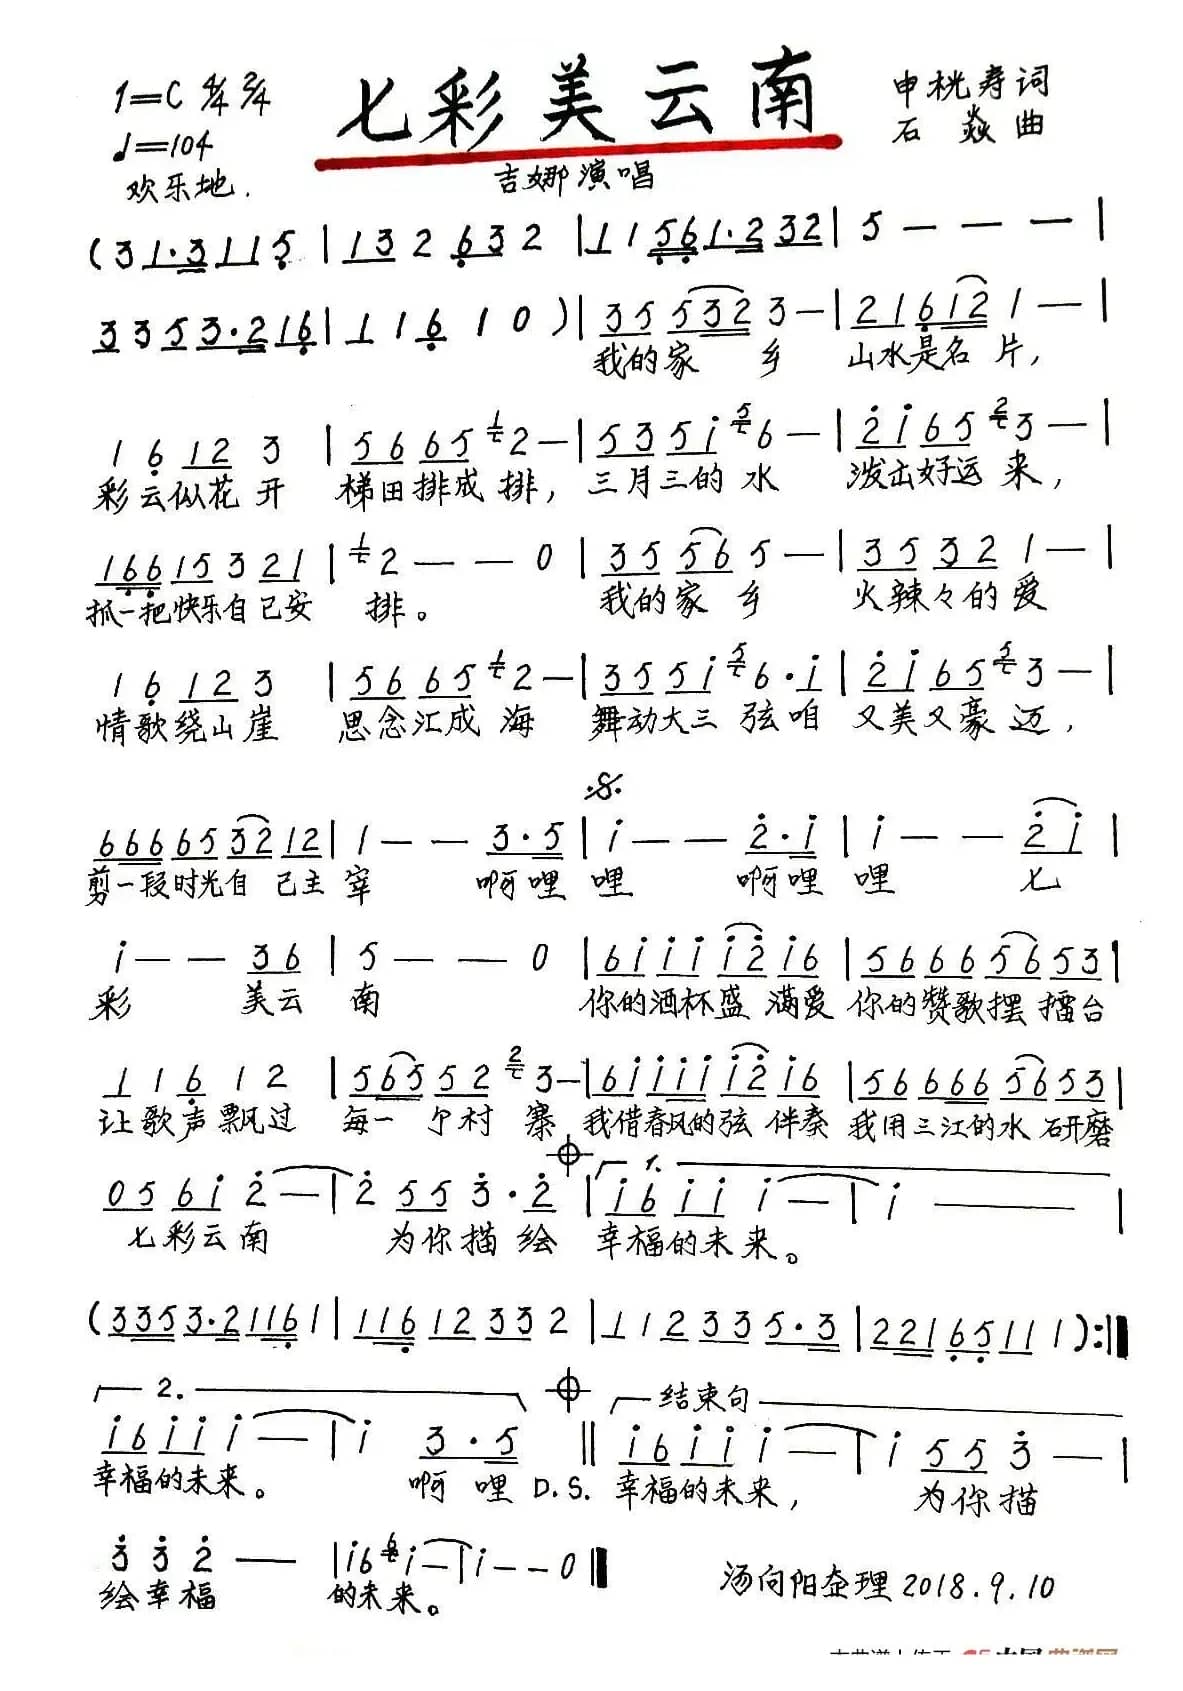 七彩美云南
1=C 4/4 2/4
♩=104
欢乐地.
申桄寿词
石焱曲
吉娜演唱
(3 1·3 1 1 5 | 1 3 2 6 3 2 | 1 1 5 6 1·2 3 2 | 5 — — — |
3 3 5 3·2 1 6 | 1 1 6 1 0 ) | 3 5 5 3 2 3 — | 2 1 6 1 2 1 — |
我的家 乡 山水是名 片,
1 6 1 2 3 | 5 6 6 5 1 2 — | 5 3 5 i 5 6 — | 2 i 6 5 2 3 — |
彩云似花 开 梯田排成 排, 三月三的 水 泼出好运 来,
1 6 6 1 5 3 2 1 | 1 2 — — 0 | 3 5 5 6 5 — | 3 5 3 2 1 — |
抓一把快乐自己安 排。 我的家 乡 火辣々的 爱
1 6 1 2 3 | 5 6 6 5 1 2 — | 3 5 5 i 5 6·i | 2 i 6 5 2 3 — |
情歌绕山崖 思念汇成 海 舞动大三 弦咱 又美又豪 迈,
6 6 6 6 5 3 2 1 2 | 1 — — 3·5 | i — — 2·i | i — — 2 i |
剪一段时光自 己主 宰 啊哩 哩 啊哩 哩 七
i — — 3 6 | 5 — — 0 | 6 i i i i 2 i 6 | 5 6 6 6 5 6 5 3 |
彩 美云 南 你的酒杯盛 满爱 你的赞歌摆 擂台
1 1 6 1 2 | 5 6 5 5 2 2 3 — | 6 i i i i i 2 i 6 | 5 6 6 6 6 5 6 5 3 |
让歌声飘过 每一 个村 寨 我借春风的弦 伴奏 我用三江的水 研磨
0 5 6 i 2 — | 2 5 5 3·2 | 1. i 6 i i i — | i — — — |
七彩云南 为你描 绘 幸福的未来。
(3 3 5 3·2 1 1 6 1 | 1 1 6 1 2 3 3 2 | 1 1 2 3 3 5·3 | 2 2 1 6 5 1 1 1 ) :‖
2. 结束句
i 6 i i i — | i 3·5 ‖ i 6 i i i — | i 5 5 3 — |
幸福的未来。 啊 哩 D.S. 幸福的未来, 为你描
3 3 2 — | i 6 6 i — | i — — 0 ‖
绘幸福 的未来。
汤向阳企理2018.9.10